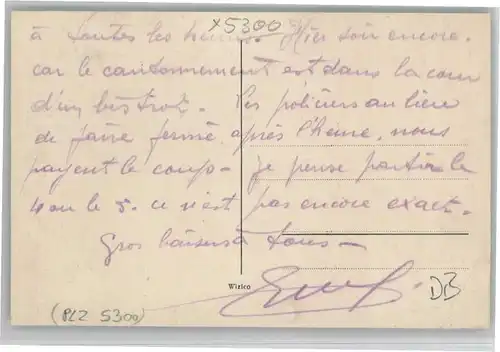 x5300
à toutes les heures. Hier soir encore.
car le cantonnement est dans la cour
d'un bistrot. Les policiers au lieu
de faire fermé après l'heure, nous
payent le coup. Je pense partir le
4 ou le 5. ce n'est pas encore exact.
Gros baisers à tous -
Wizico
DB
(PLZ 5300)